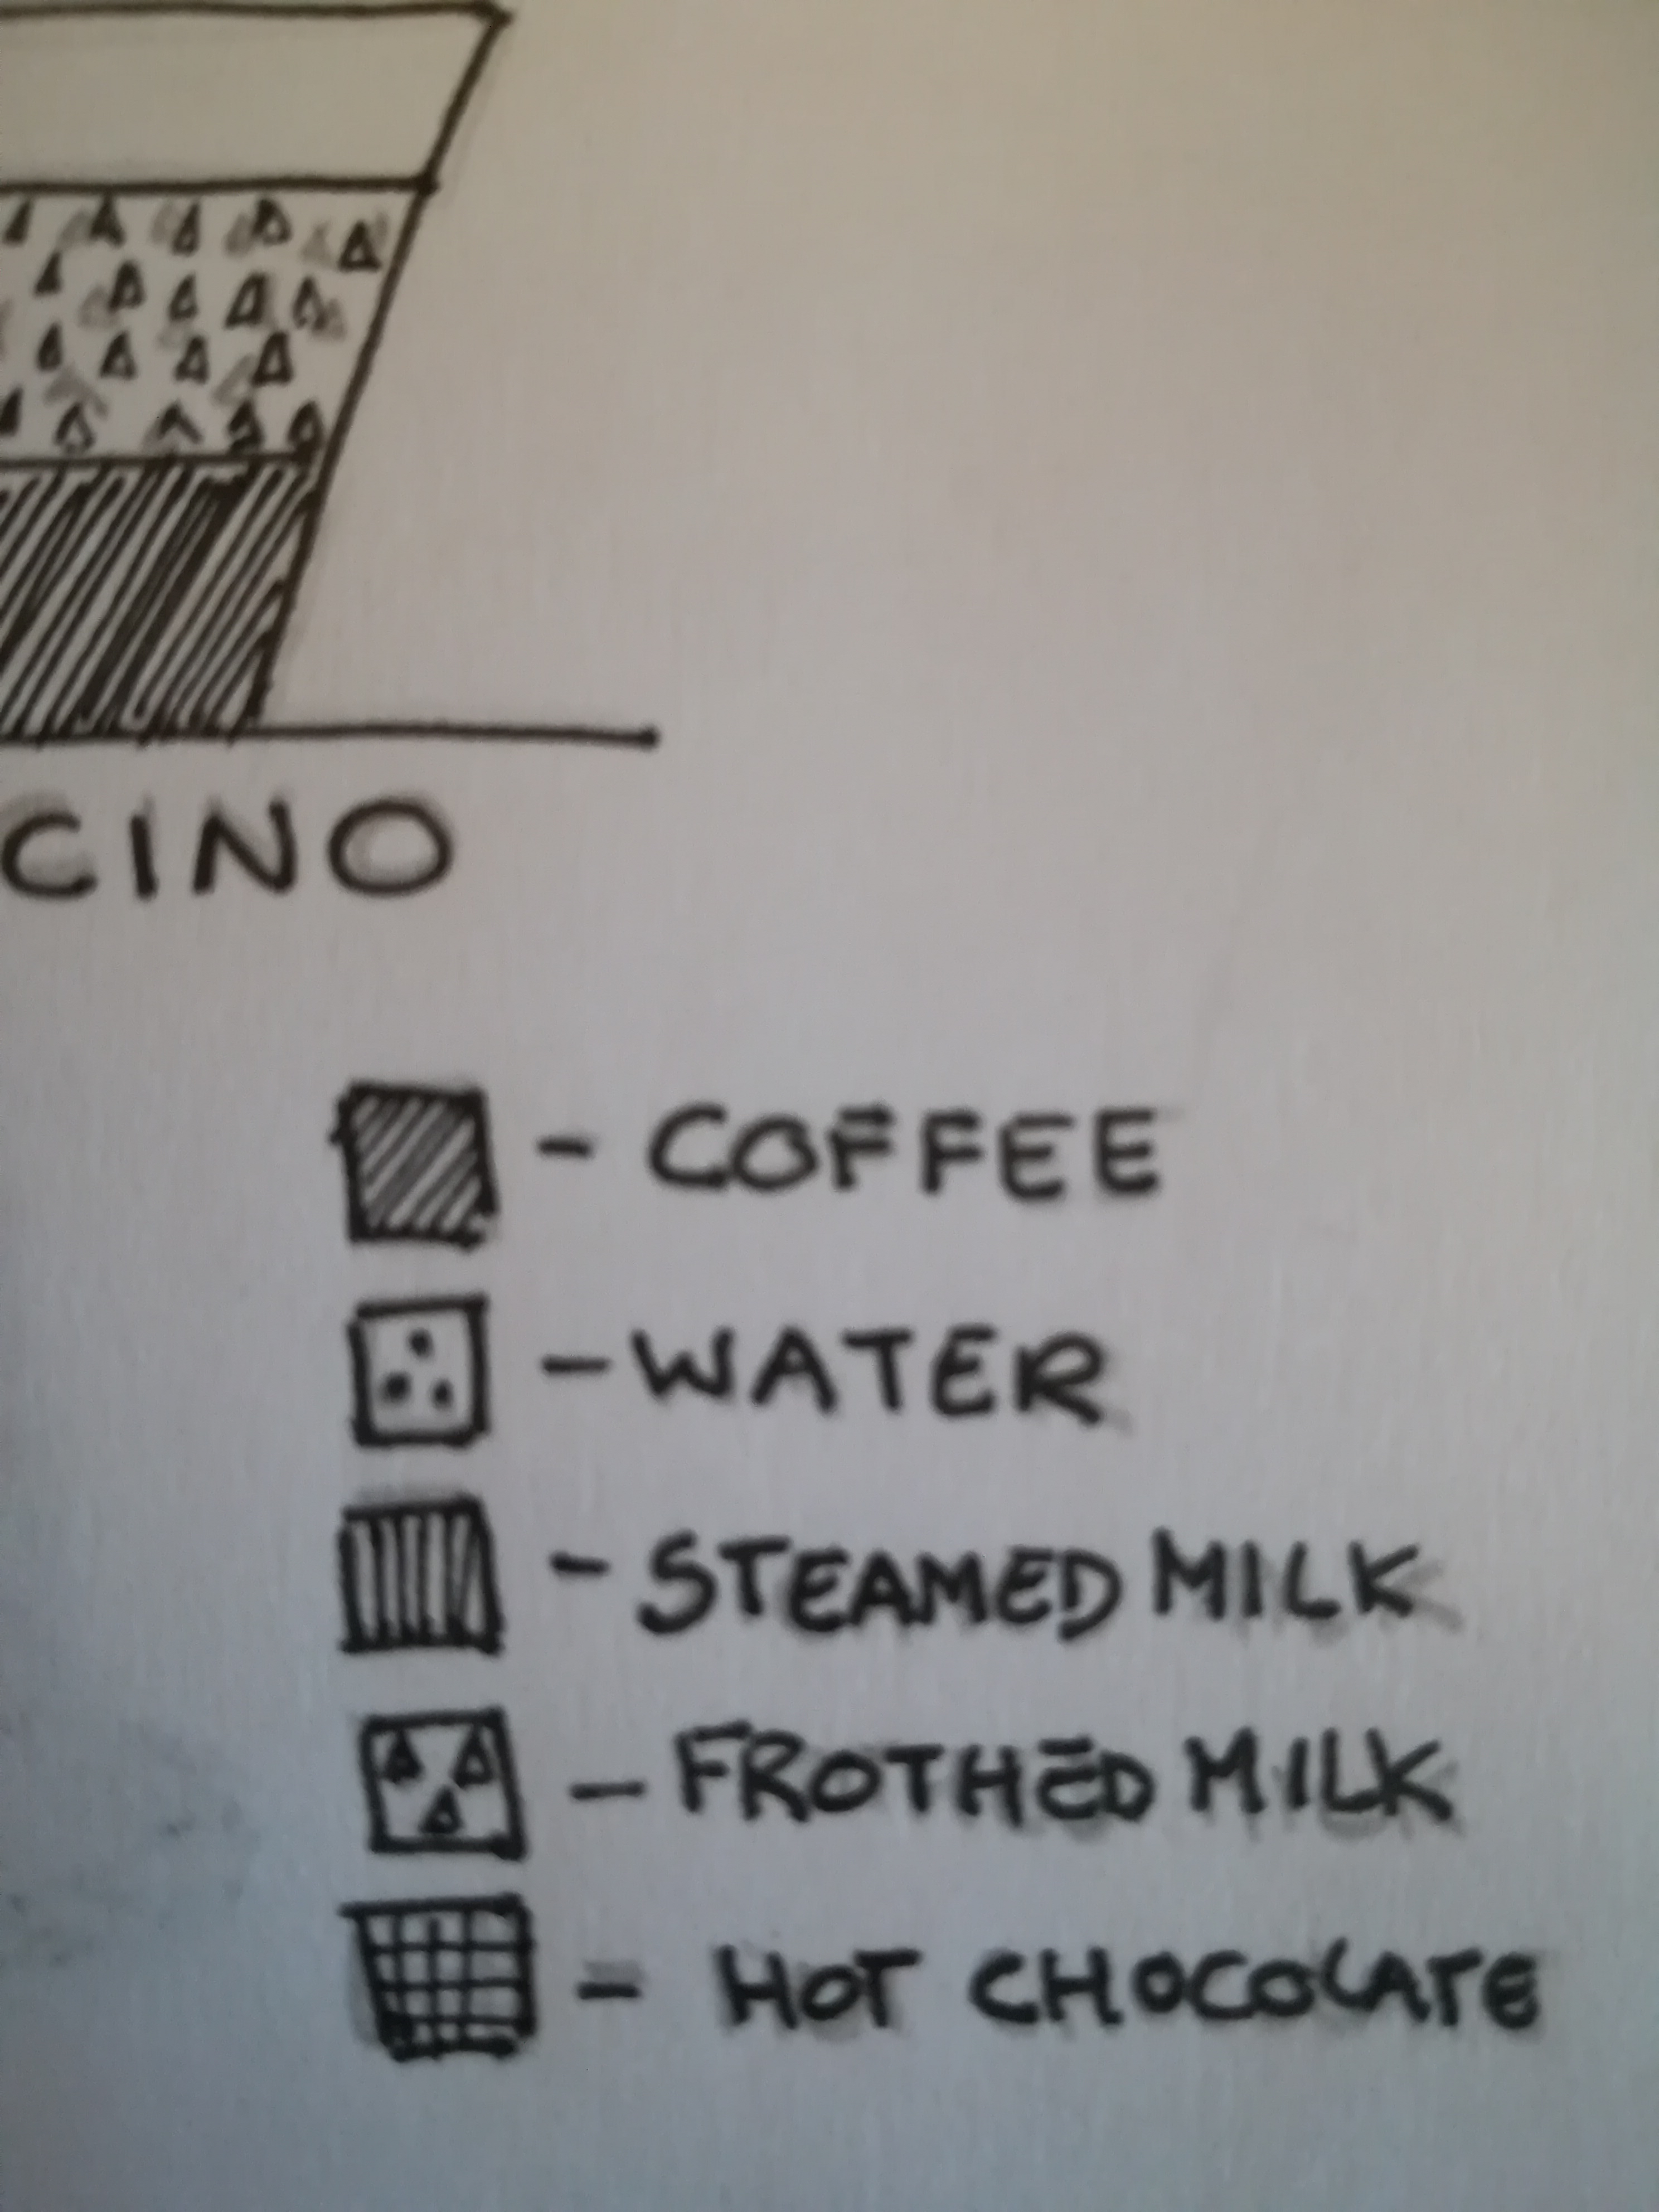 CINO
- COFFEE
- WATER
- STEAMED MILK
- FROTHED MILK
- HOT CHOCOLATE